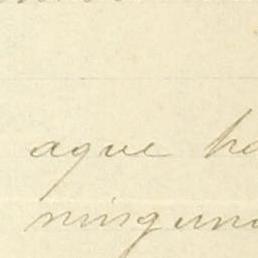 aque ha
ninguno